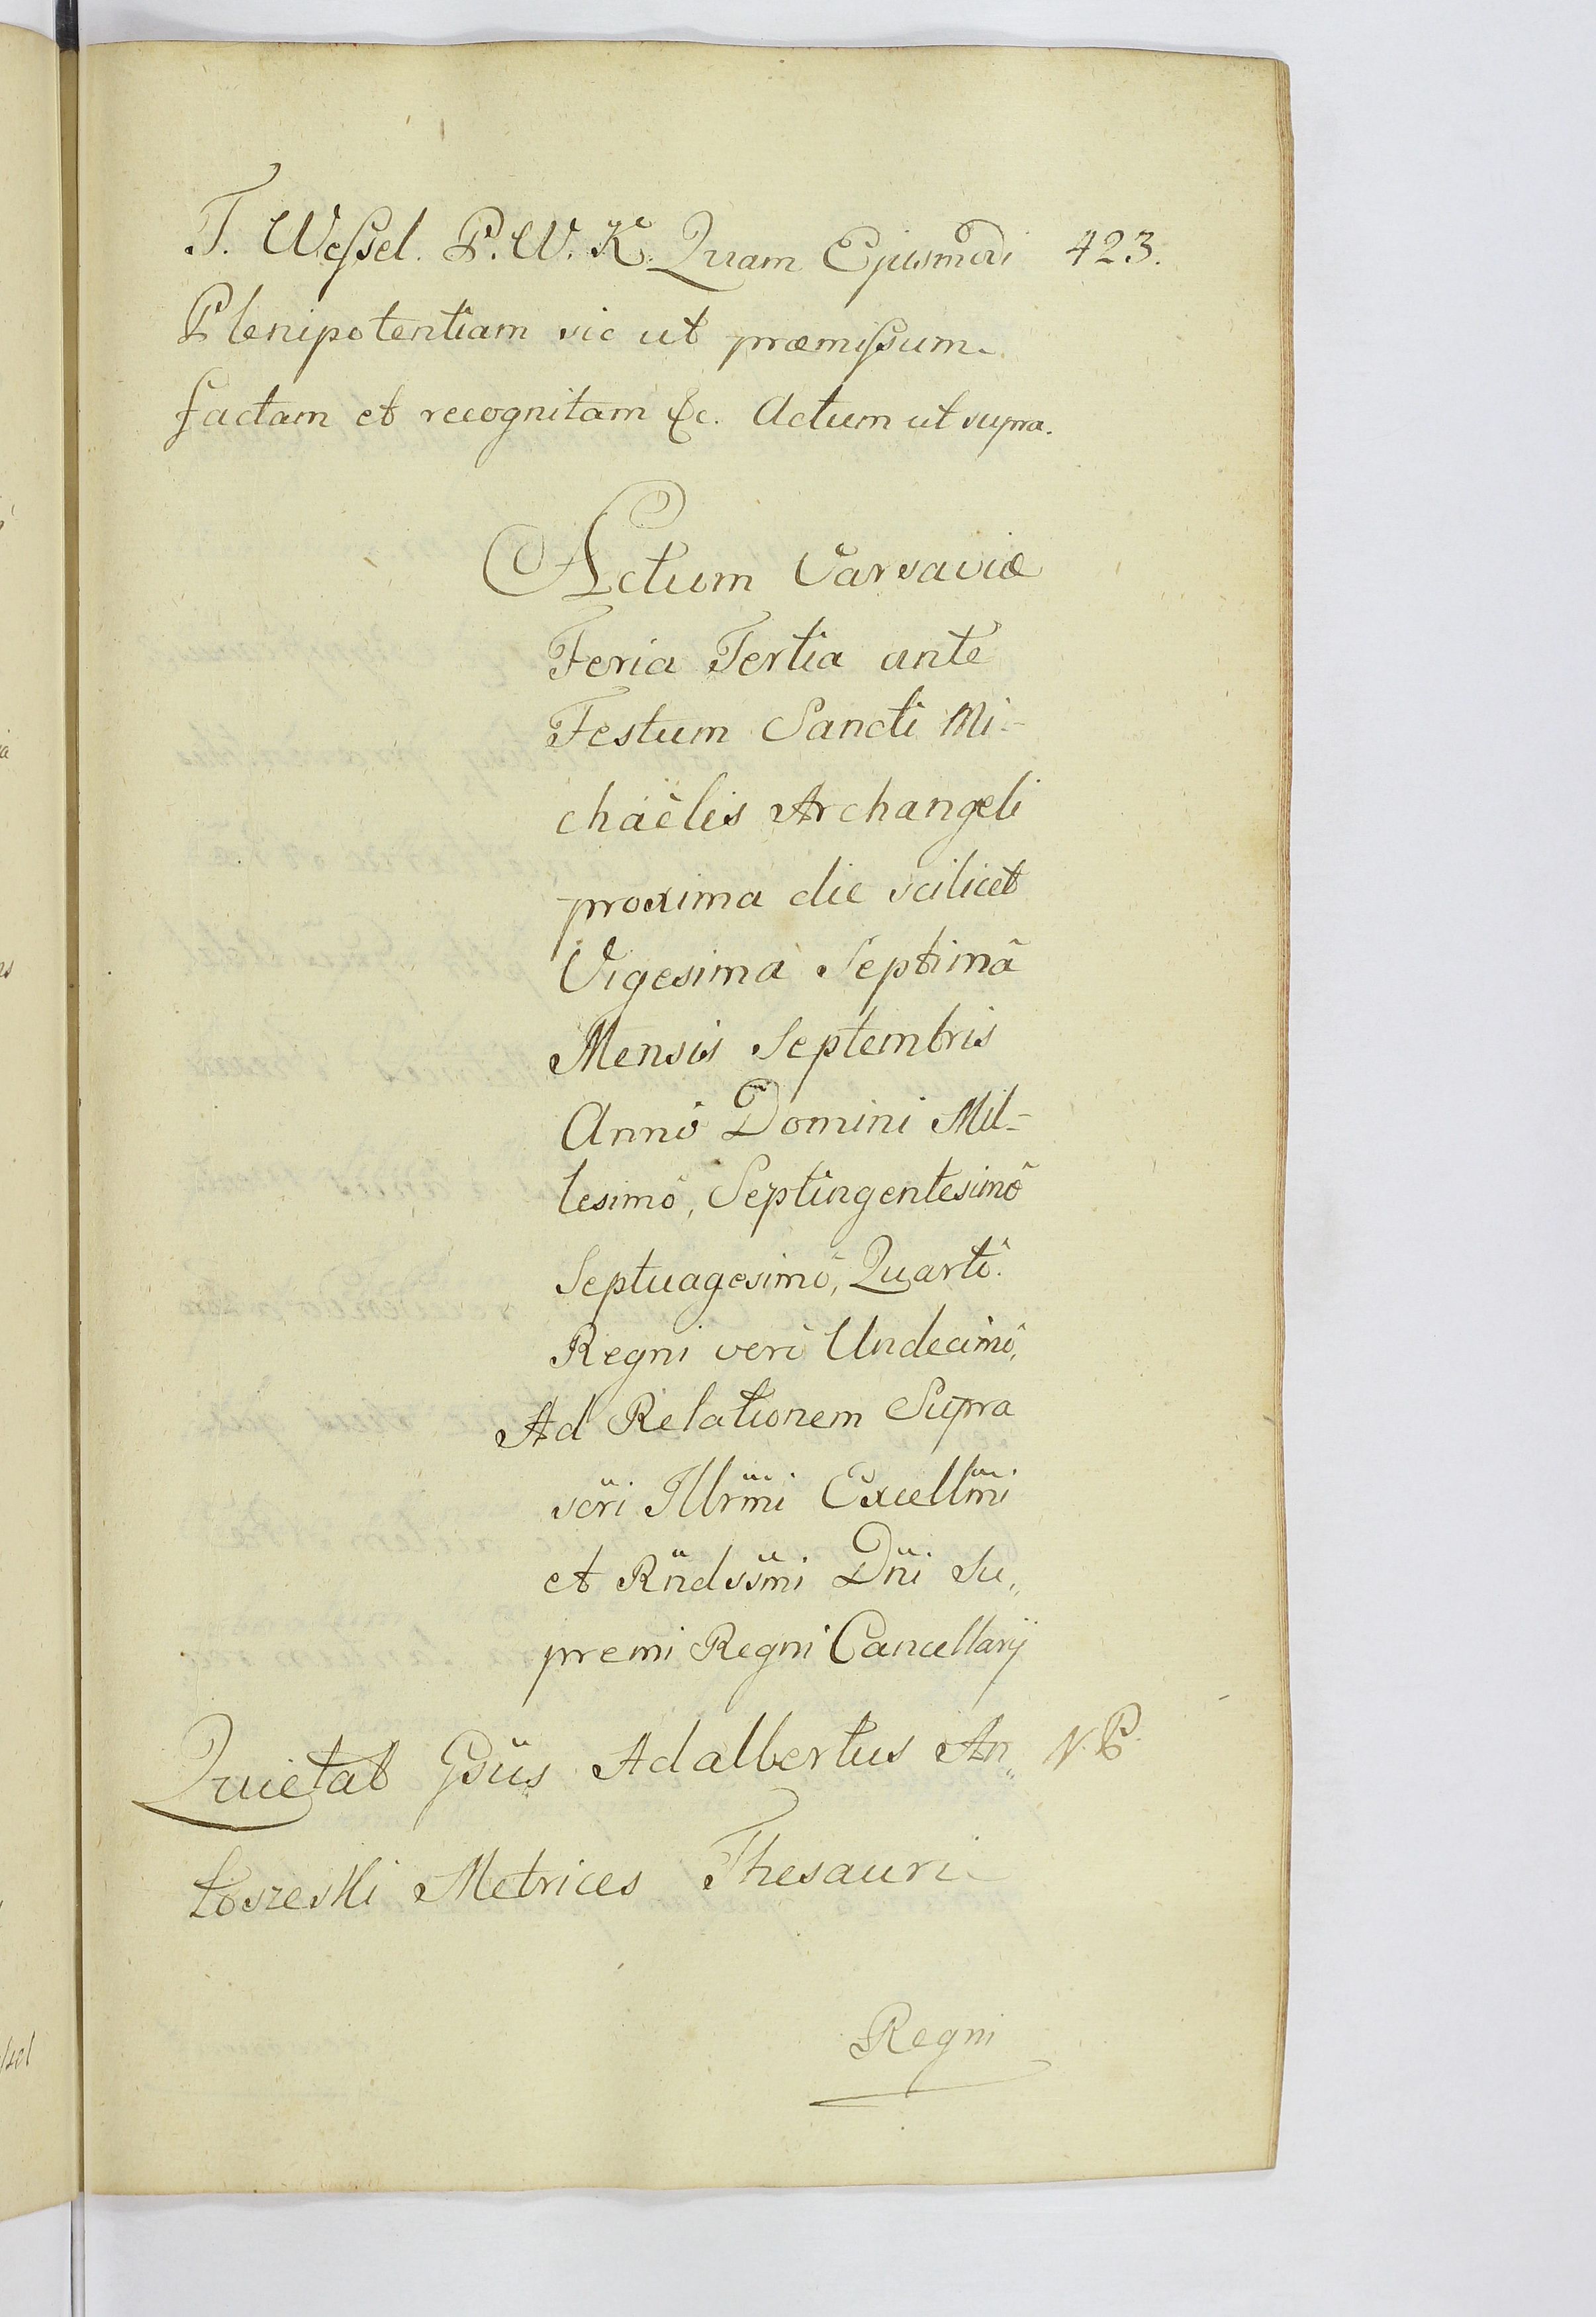 T. Wessel. P. W. K. Quam Ejusmodi 423.
Plenipotentiam sic ut præmissum
factam et recognitam &c. Actum ut supra.
Actum Varsaviæ
Feria Tertia ante
Festum Sancti Mi-
chaëlis Archangeli
proxima die scilicet
Vigesima Septimâ
Mensis Septembris
Annô Domini Mil-
lesimô, Septingentesimô
Septuagesimô, Quartô.
Regni verô Undecimô,
Ad Relationem Supra
scri Illrmi Excellmi
et Rndssmi Dni Su„
premi Regni Cancellarij
Quietat Gsus Adalbertus An„ N. P.
toszeski Metrices Thesauri
Regni